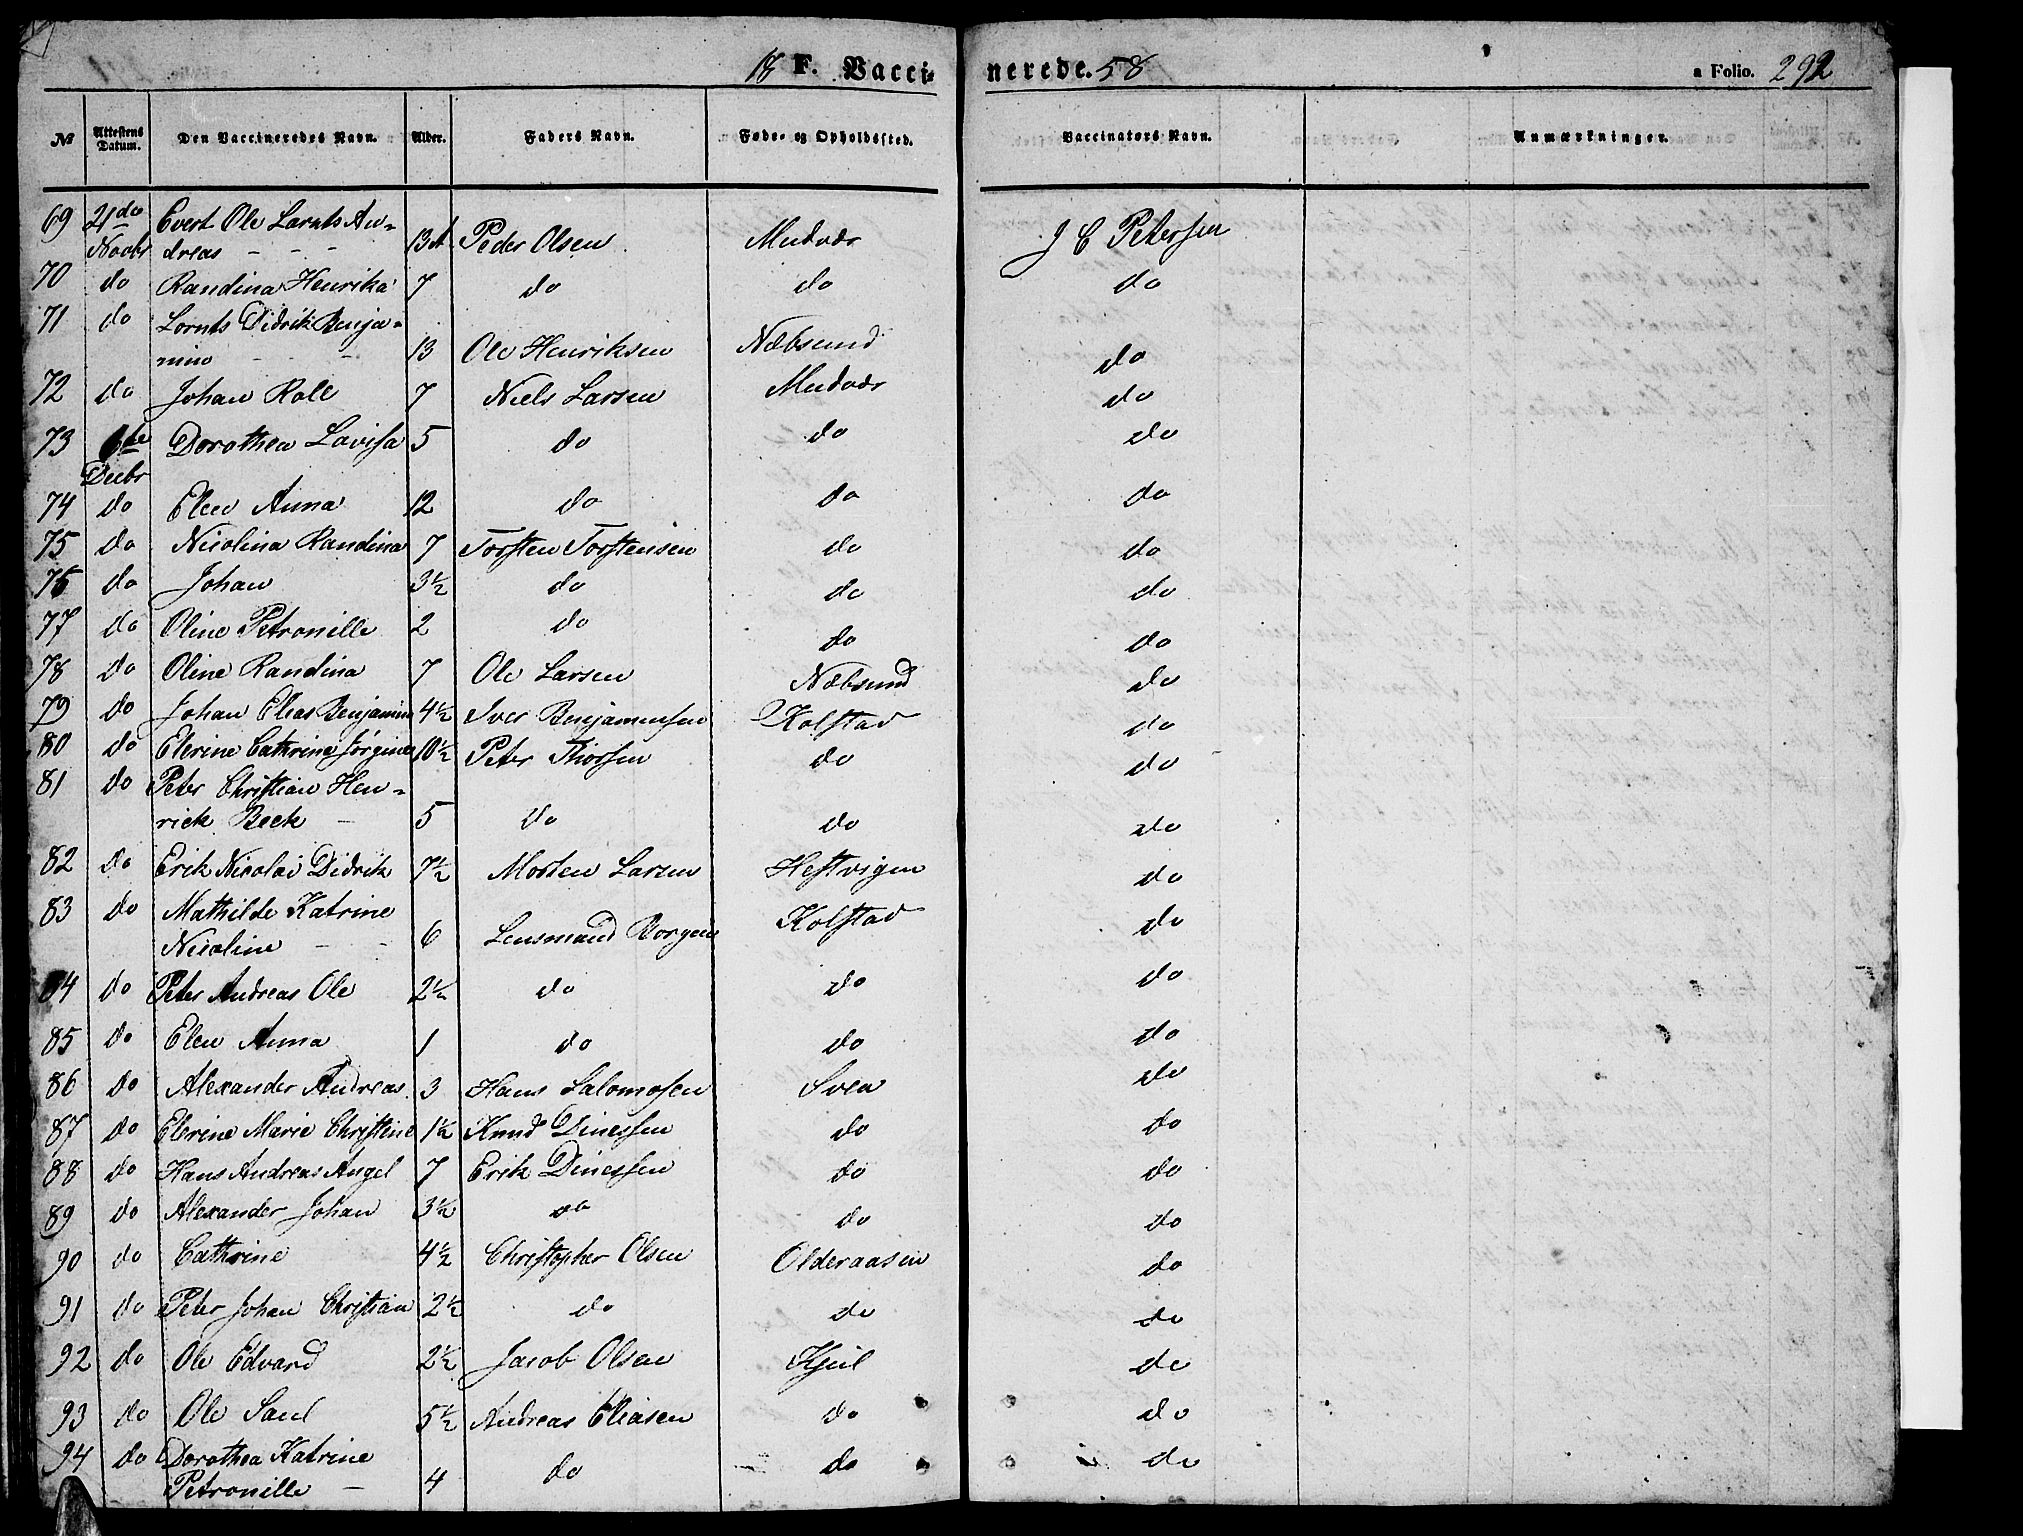 18 F. Vacci- nerede. 58 a Folio. 292
№ Attestens Datum. Den Vaccineredes Navn. Alder. Faders Navn. Føde- og Opholdssted. Vaccinators Navn. Anmærkninger.
69 21de Evert Ole Larnts An-
Novbr dreas - - - 13 Peder Olsen Medvær J C Petersen
70 do Randina Henrika 7 do do do
71 do Lornts Didrik Benja-
min - - 13 Ole Henriksen Næbsund do
72 do Johan Roll 7 Niels Larsen Medvær do
73 6te Dorothea Lovisa 5 do do do
Decbr
74 do Elen Anna 12 do do do
75 do Nicolina Randina 7 Torsten Torstensen do do
76 do Johan 3½ do do do
77 do Oline Petronille 2 do do do
78 do Oline Randina 7 Ole Larsen Næbsund do
79 do Johan Elias Benjamin 4½ Iver Benjamensen Kolstad do
80 do Elerine Cathrine Jørgine 10½ Peter Thorsen do do
81 do Peter Christian Hen-
rick Beck - 5 do do do
82 do Erik Nicolai Didrik 7½ Morten Larsen Hestvigen do
83 do Mathilde Katrine
Nicoline - - 6 Lensmand Borgen Kolstad do
84 do Peter Andreas Ole 2½ do do do
85 do Elen Anna 1 do do do
86 do Alexander Andreas 3 Hans Salomosen Svea do
87 do Elerine Marie Christine 1½ Knud Dinessen do do
88 do Hans Andreas Angel 7 Erik Dinessen do do
89 do Alexander Johan 3½ do do do
90 do Cathrine 4½ Christopher Olsen Olderaasen do
91 do Peter Johan Christian 2½ do do do
92 do Ole Edvard 2½ Jacob Olsen Kjul do
93 do Ole Saul 5½ Andreas Eliasen do do
94 do Dorothea Katrine
Petronille - 4 do do do